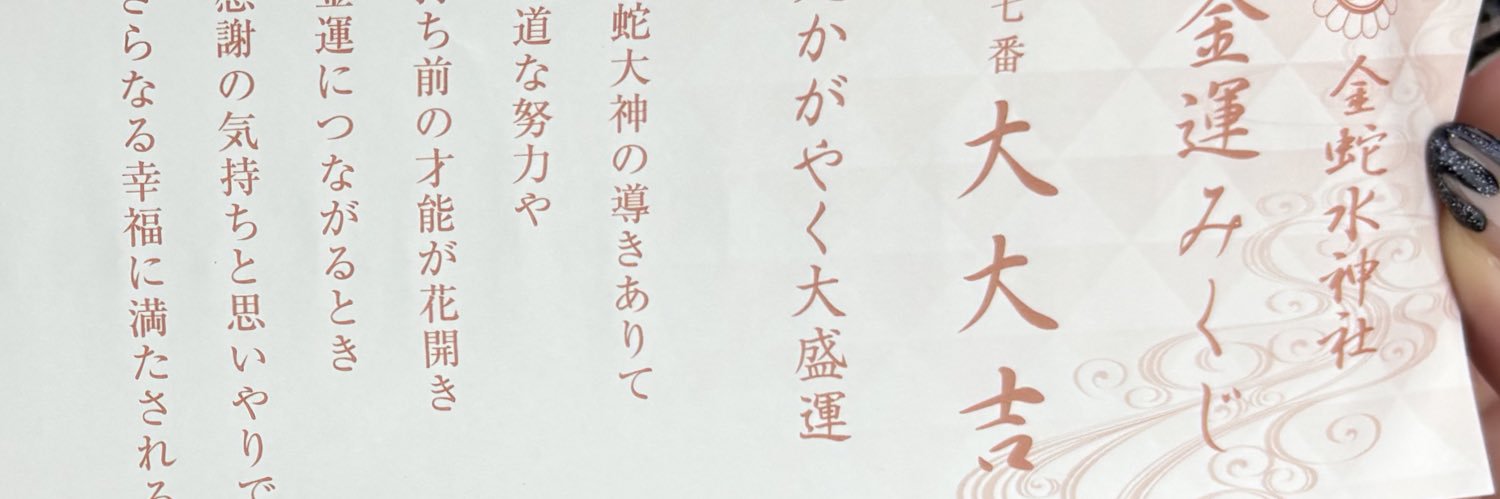 金蛇水神社
金運みくじ
七番 大大吉
かがやく大盛運
蛇大神の導きありて
道な努力や
ち前の才能が花開き
金運につながるとき
感謝の気持ちと思いやりで
さらなる幸福に満たされる